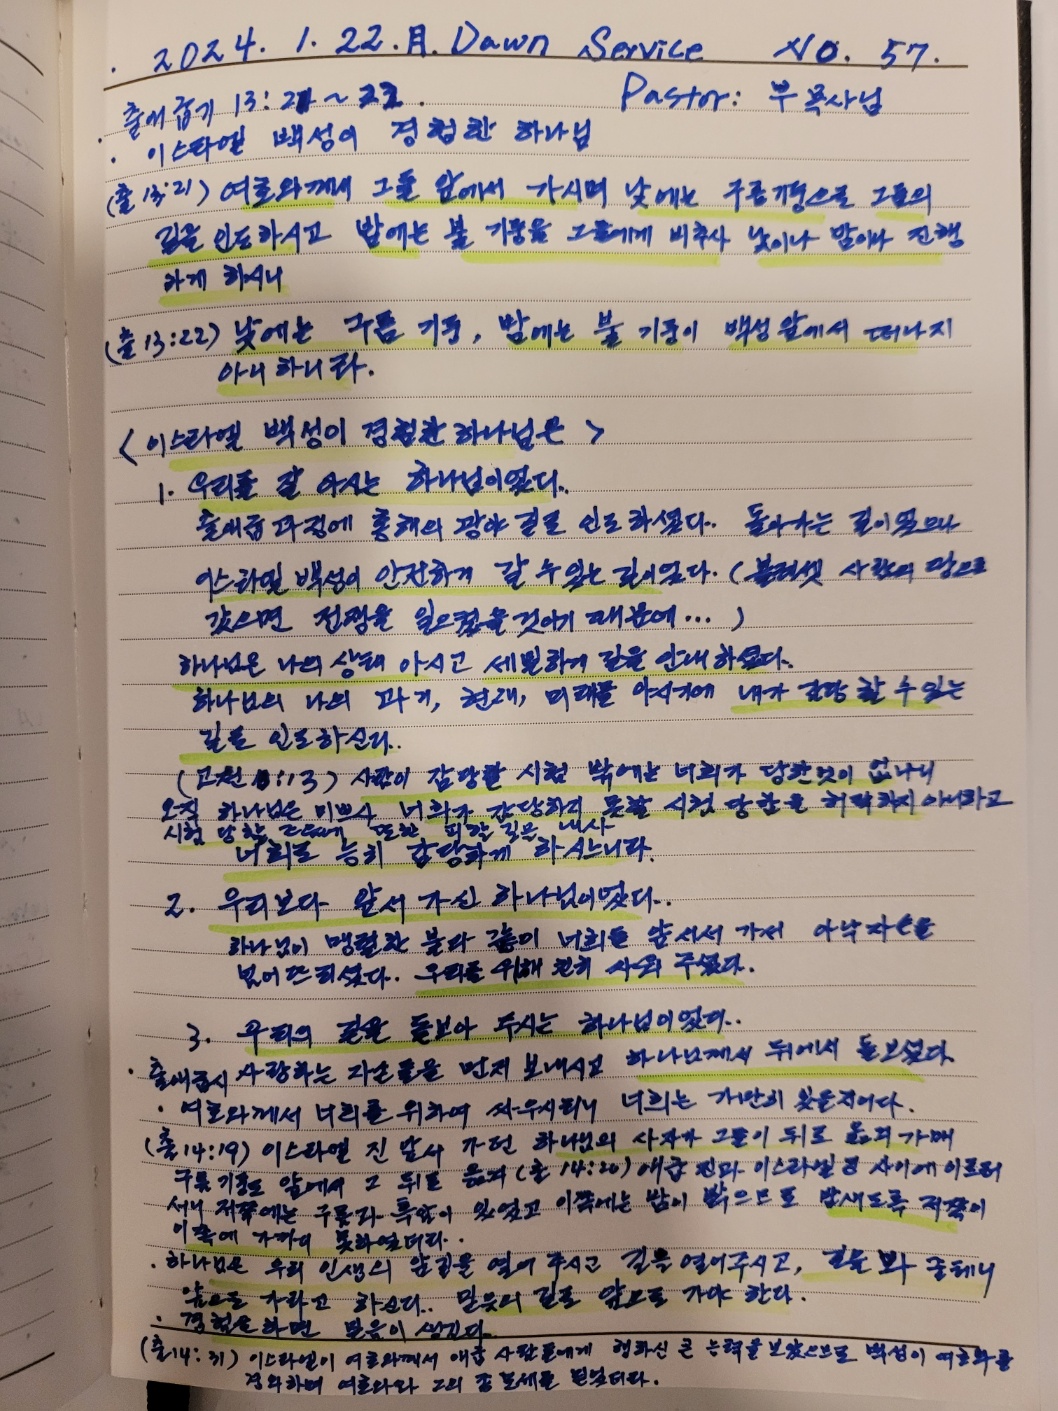 2024. 1. 22. 月. Dawn Service No. 57.
· 출애굽기 13:21~22. Pastor: 부목사님
· 이스라엘 백성이 경험한 하나님
(출 13:21) 여호와께서 그들 앞에서 가시며 낮에는 구름기둥으로 그들의
길을 인도하시고 밤에는 불 기둥을 그들에게 비추사 낮이나 밤이나 진행
하게 하시니
(출 13:22) 낮에는 구름 기둥, 밤에는 불 기둥이 백성 앞에서 떠나지
아니하니라.
< 이스라엘 백성이 경험한 하나님은 >
1. 우리를 잘 아시는 하나님이었다..
출애굽 과정에 홍해의 광야 길로 인도하셨다.. 돌아가는 길이었으나
이스라엘 백성이 안전하게 갈 수 있는 길이었다. (블레셋 사람의 땅으로
갔으면 전쟁을 일으켰을 것이기 때문에...)
하나님은 나의 상태 아시고 세밀하게 길을 안내하셨다..
하나님의 나의 과거, 현재, 미래를 아시기에 내가 감당 할 수 있는
길로 인도하신다..
(고전 10:13) 사람이 감당할 시험 밖에는 너희가 당한 것이 없나니
오직 하나님은 미쁘사 너희가 감당하지 못할 시험 당함을 허락하지 아니하고
시험 당할 즈음에 또한 피할 길을 내사
너희로 능히 감당하게 하시느니라.
2. 우리보다 앞서 가신 하나님이었다..
하나님이 맹렬한 불과 같이 너희들 앞서서 가서 아낙 자손을
엎어뜨리셨다. 우리를 위해 친히 싸워 주셨다.
3. 우리의 길을 돌보아 주시는 하나님이었다..
· 출애굽시 사랑하는 자손들을 먼저 보내시고 하나님께서 뒤에서 돌보셨다.
· 여호와께서 너희를 위하여 싸우시리니 너희는 가만히 있을지어다.
(출 14:19) 이스라엘 진 앞서 가던 하나님의 사자가 그들의 뒤로 옮겨 가매
구름 기둥도 앞에서 그 뒤로 옮겨 (출 14:20) 애굽 진과 이스라엘 진 사이에 이르러
서니 저쪽에는 구름과 흑암이 있었고 이쪽에는 밤이 밝으므로 밤새도록 저쪽이
이쪽에 가까이 못하였더라.
· 하나님은 우리 인생의 앞길을 열어 주시고 길을 열어주시고, 길을 봐 줄테니
앞으로 가라고 하신다.. 믿음의 길로 앞으로 가야 한다.
· 경험을 하면 믿음이 생긴다..
(출 14:31) 이스라엘이 여호와께서 애굽 사람들에게 행하신 큰 능력을 보았으므로 백성이 여호와를
경외하며 여호와와 그의 종 모세를 믿었더라.